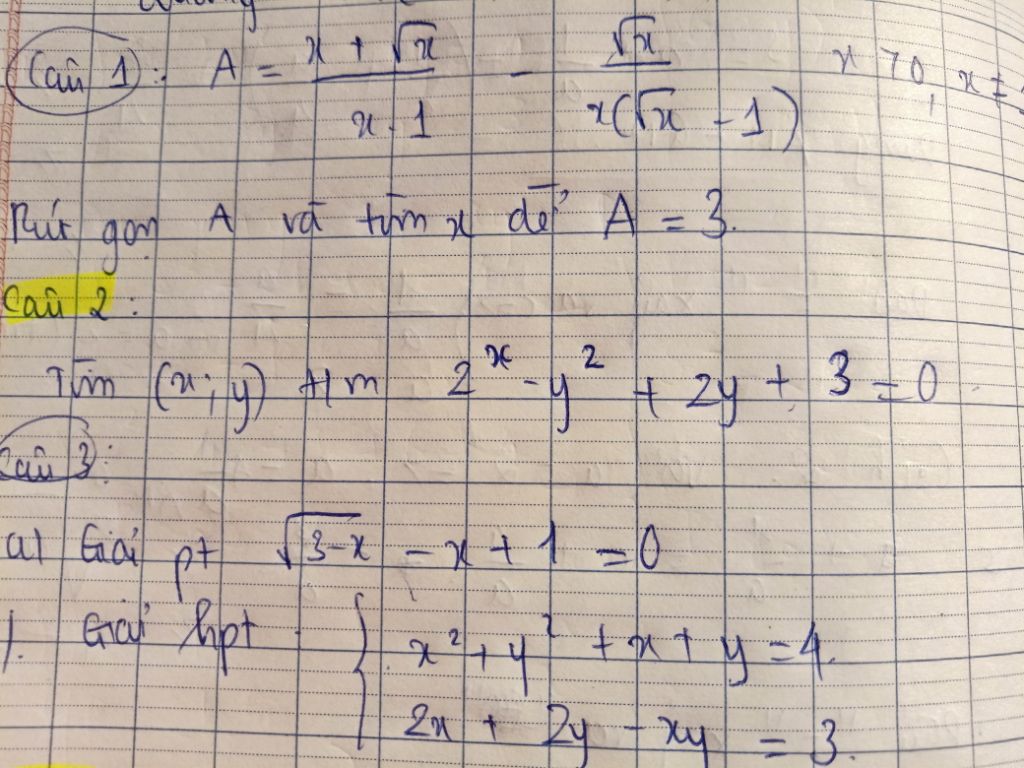 Câu 1): A = \frac{x + \sqrt{x}}{x - 1} - \frac{\sqrt{x}}{x(\sqrt{x} - 1)} x > 0, x ≠
Rút gọn A và tìm x để A = 3.
Câu 2:
Tìm (x; y) 2^x - y^2 + 2y + 3 = 0
Câu 3:
a) Giải pt \sqrt{3-x} - x + 1 = 0
Giải hpt \begin{cases} x^2 + y^2 + x + y = 4. \\ 2x + 2y - xy = 3. \end{cases}